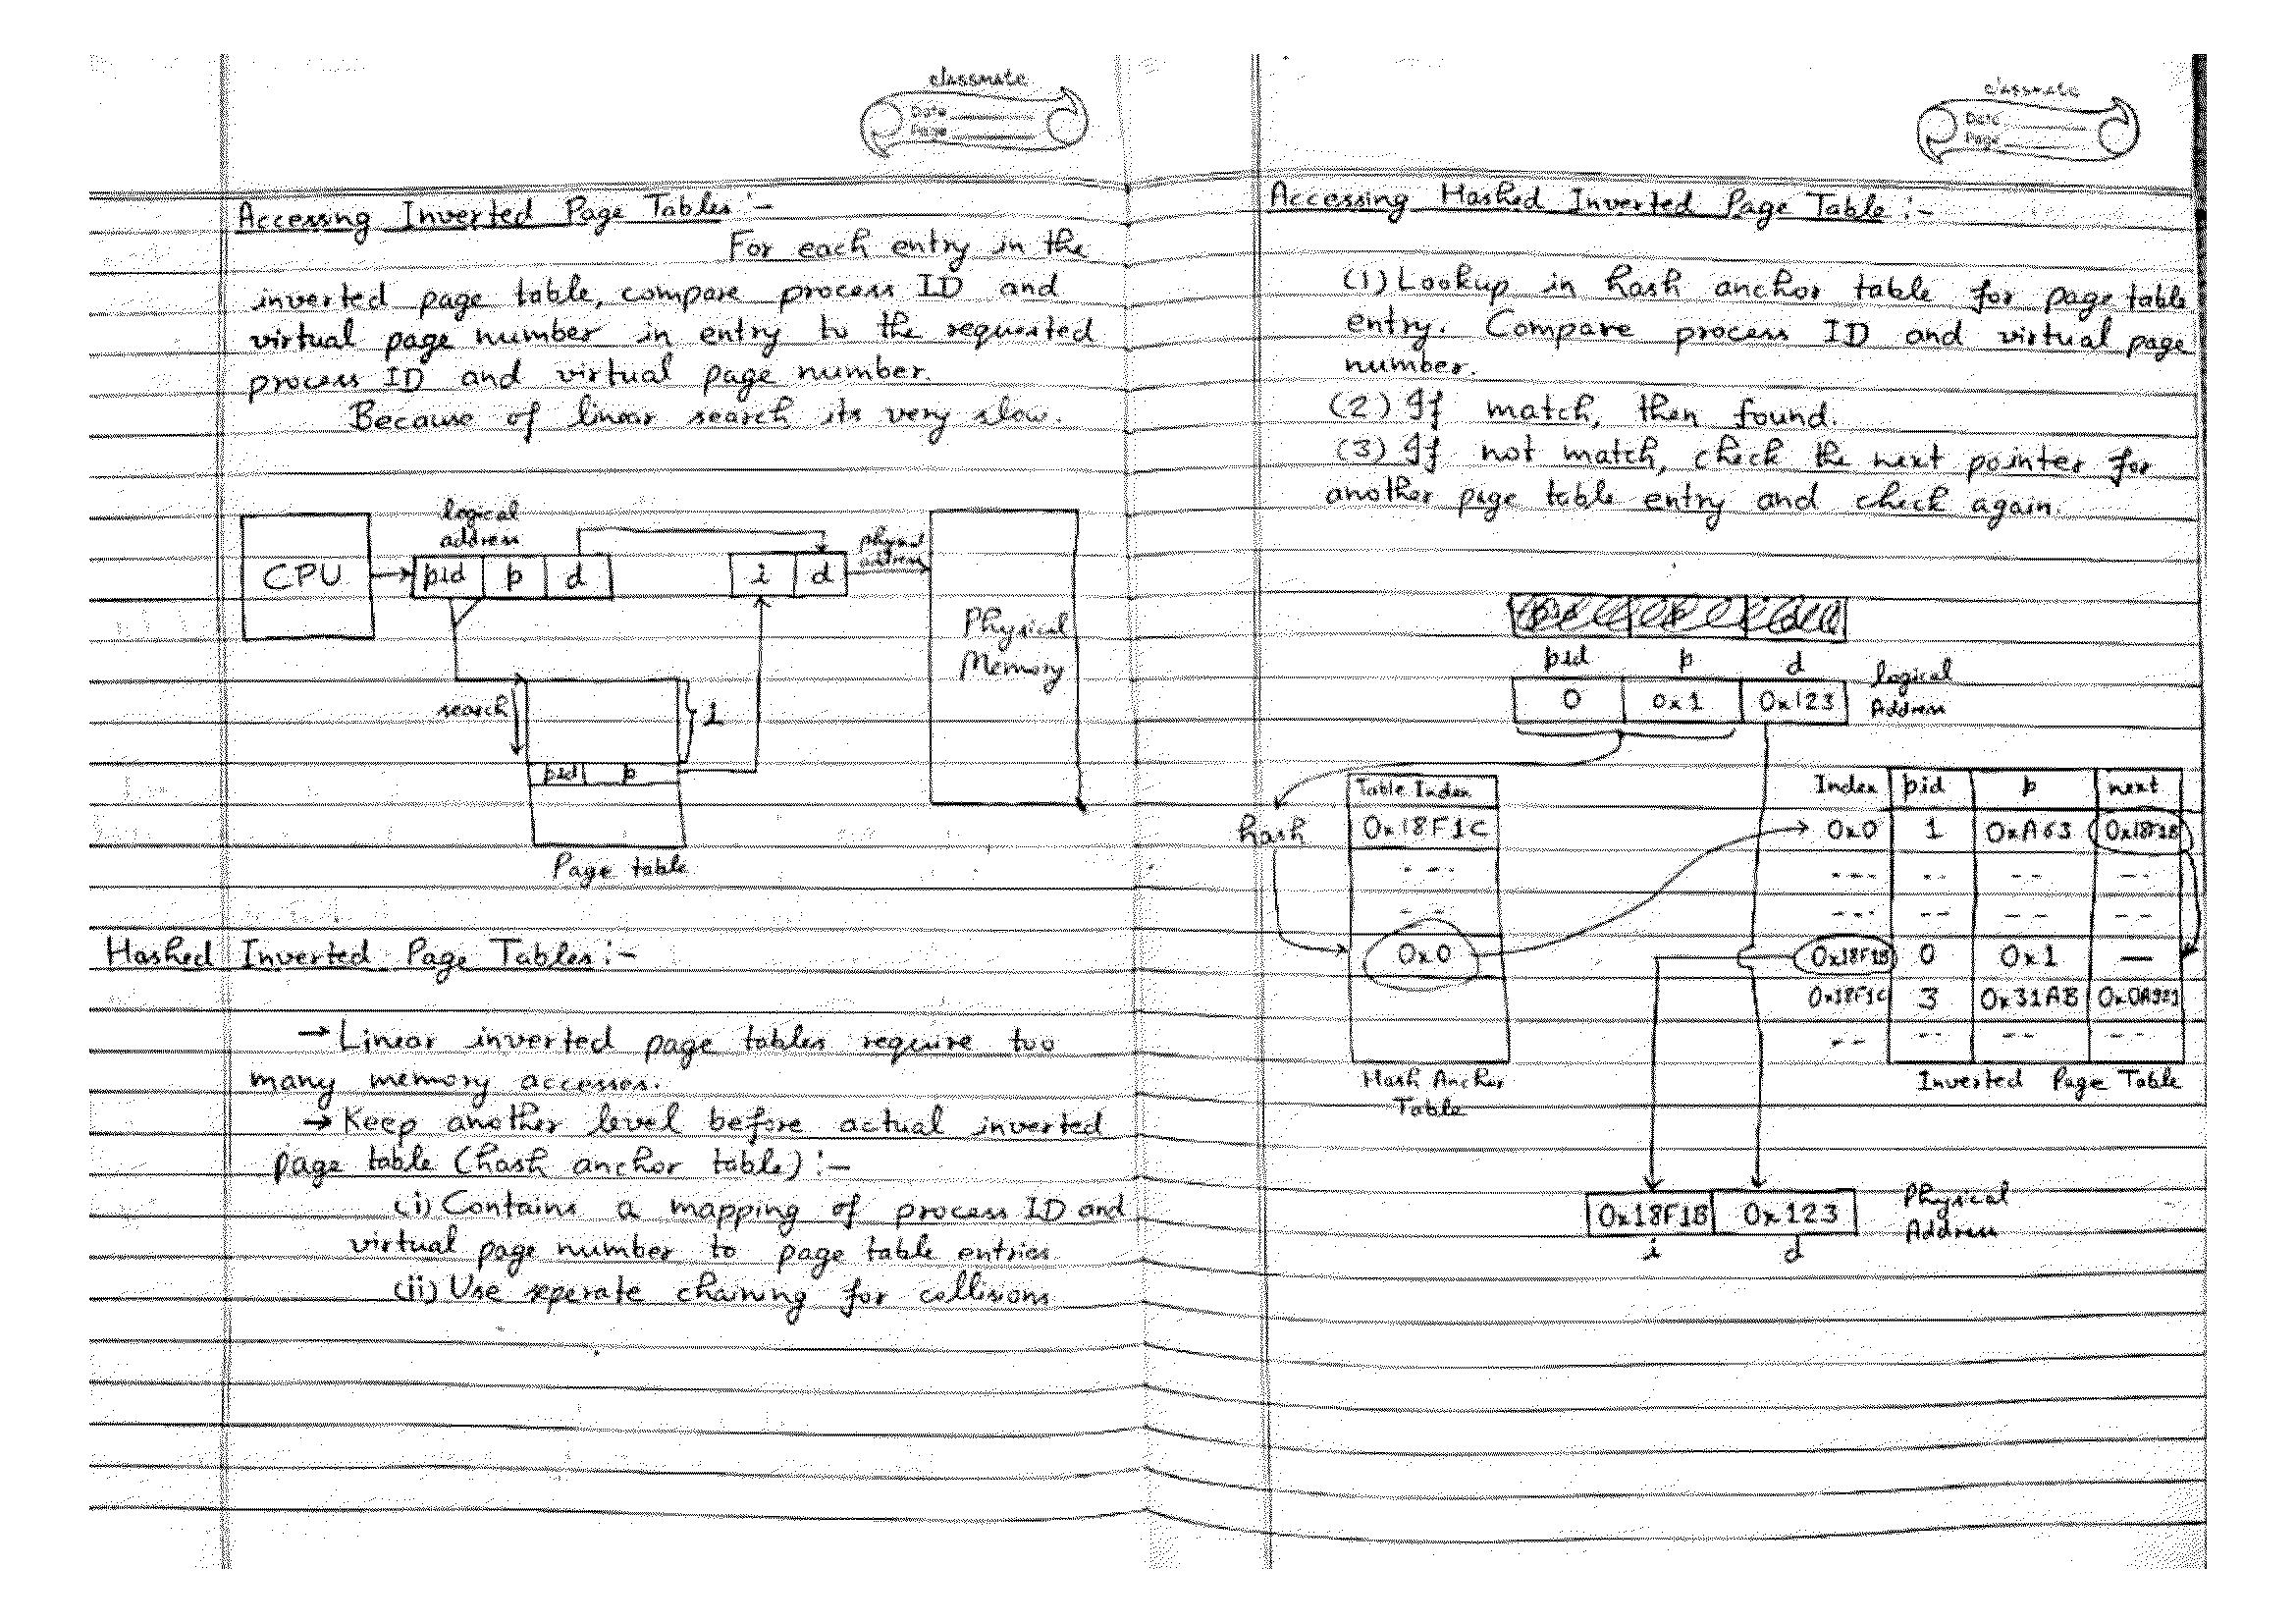 classmate
Date
Page
Accessing Inverted Page Tables :-
For each entry in the
inverted page table, compare process ID and
virtual page number in entry to the requested
process ID and virtual page number.
Because of linear search its very slow.
logical
address
CPU
pid p d
i d
physical
address
Physical
Memory
search
i
pid p
Page table
Hashed Inverted Page Tables :-
→ Linear inverted page tables require too
many memory accesses.
→ Keep another level before actual inverted
page table (hash anchor table) :-
(i) Contains a mapping of process ID and
virtual page number to page table entries
(ii) Use seperate chaining for collisions
classmate
Date
Page
Accessing Hashed Inverted Page Table :-
(1) Lookup in hash anchor table for page table
entry. Compare process ID and virtual page
number.
(2) If match, then found.
(3) If not match, check the next pointer for
another page table entry and check again.
pid p d
0 0x1 0x123
logical
Address
hash
Table Index
0x18F1C
- - -
- - -
0x0
Hash Anchor
Table
Index pid p next
0x0 1 0xA63 0x18F1B
--- -- -- --
--- -- -- --
0x18F1B 0 0x1 —
0x18F1C 3 0x31AB 0x0A921
-- -- -- --
Inverted Page Table
0x18F1B 0x123
i d
Physical
Address